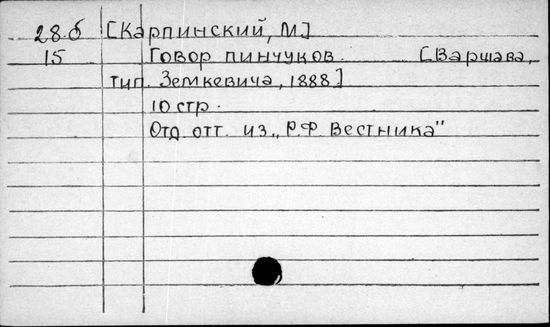 28.б [Карпинский, М]
15 Говор пинчуков. [Варшава,
тип. Земкевича, 1888]
10 стр.
Отд. отт. из „Р.Ф. Вестника"